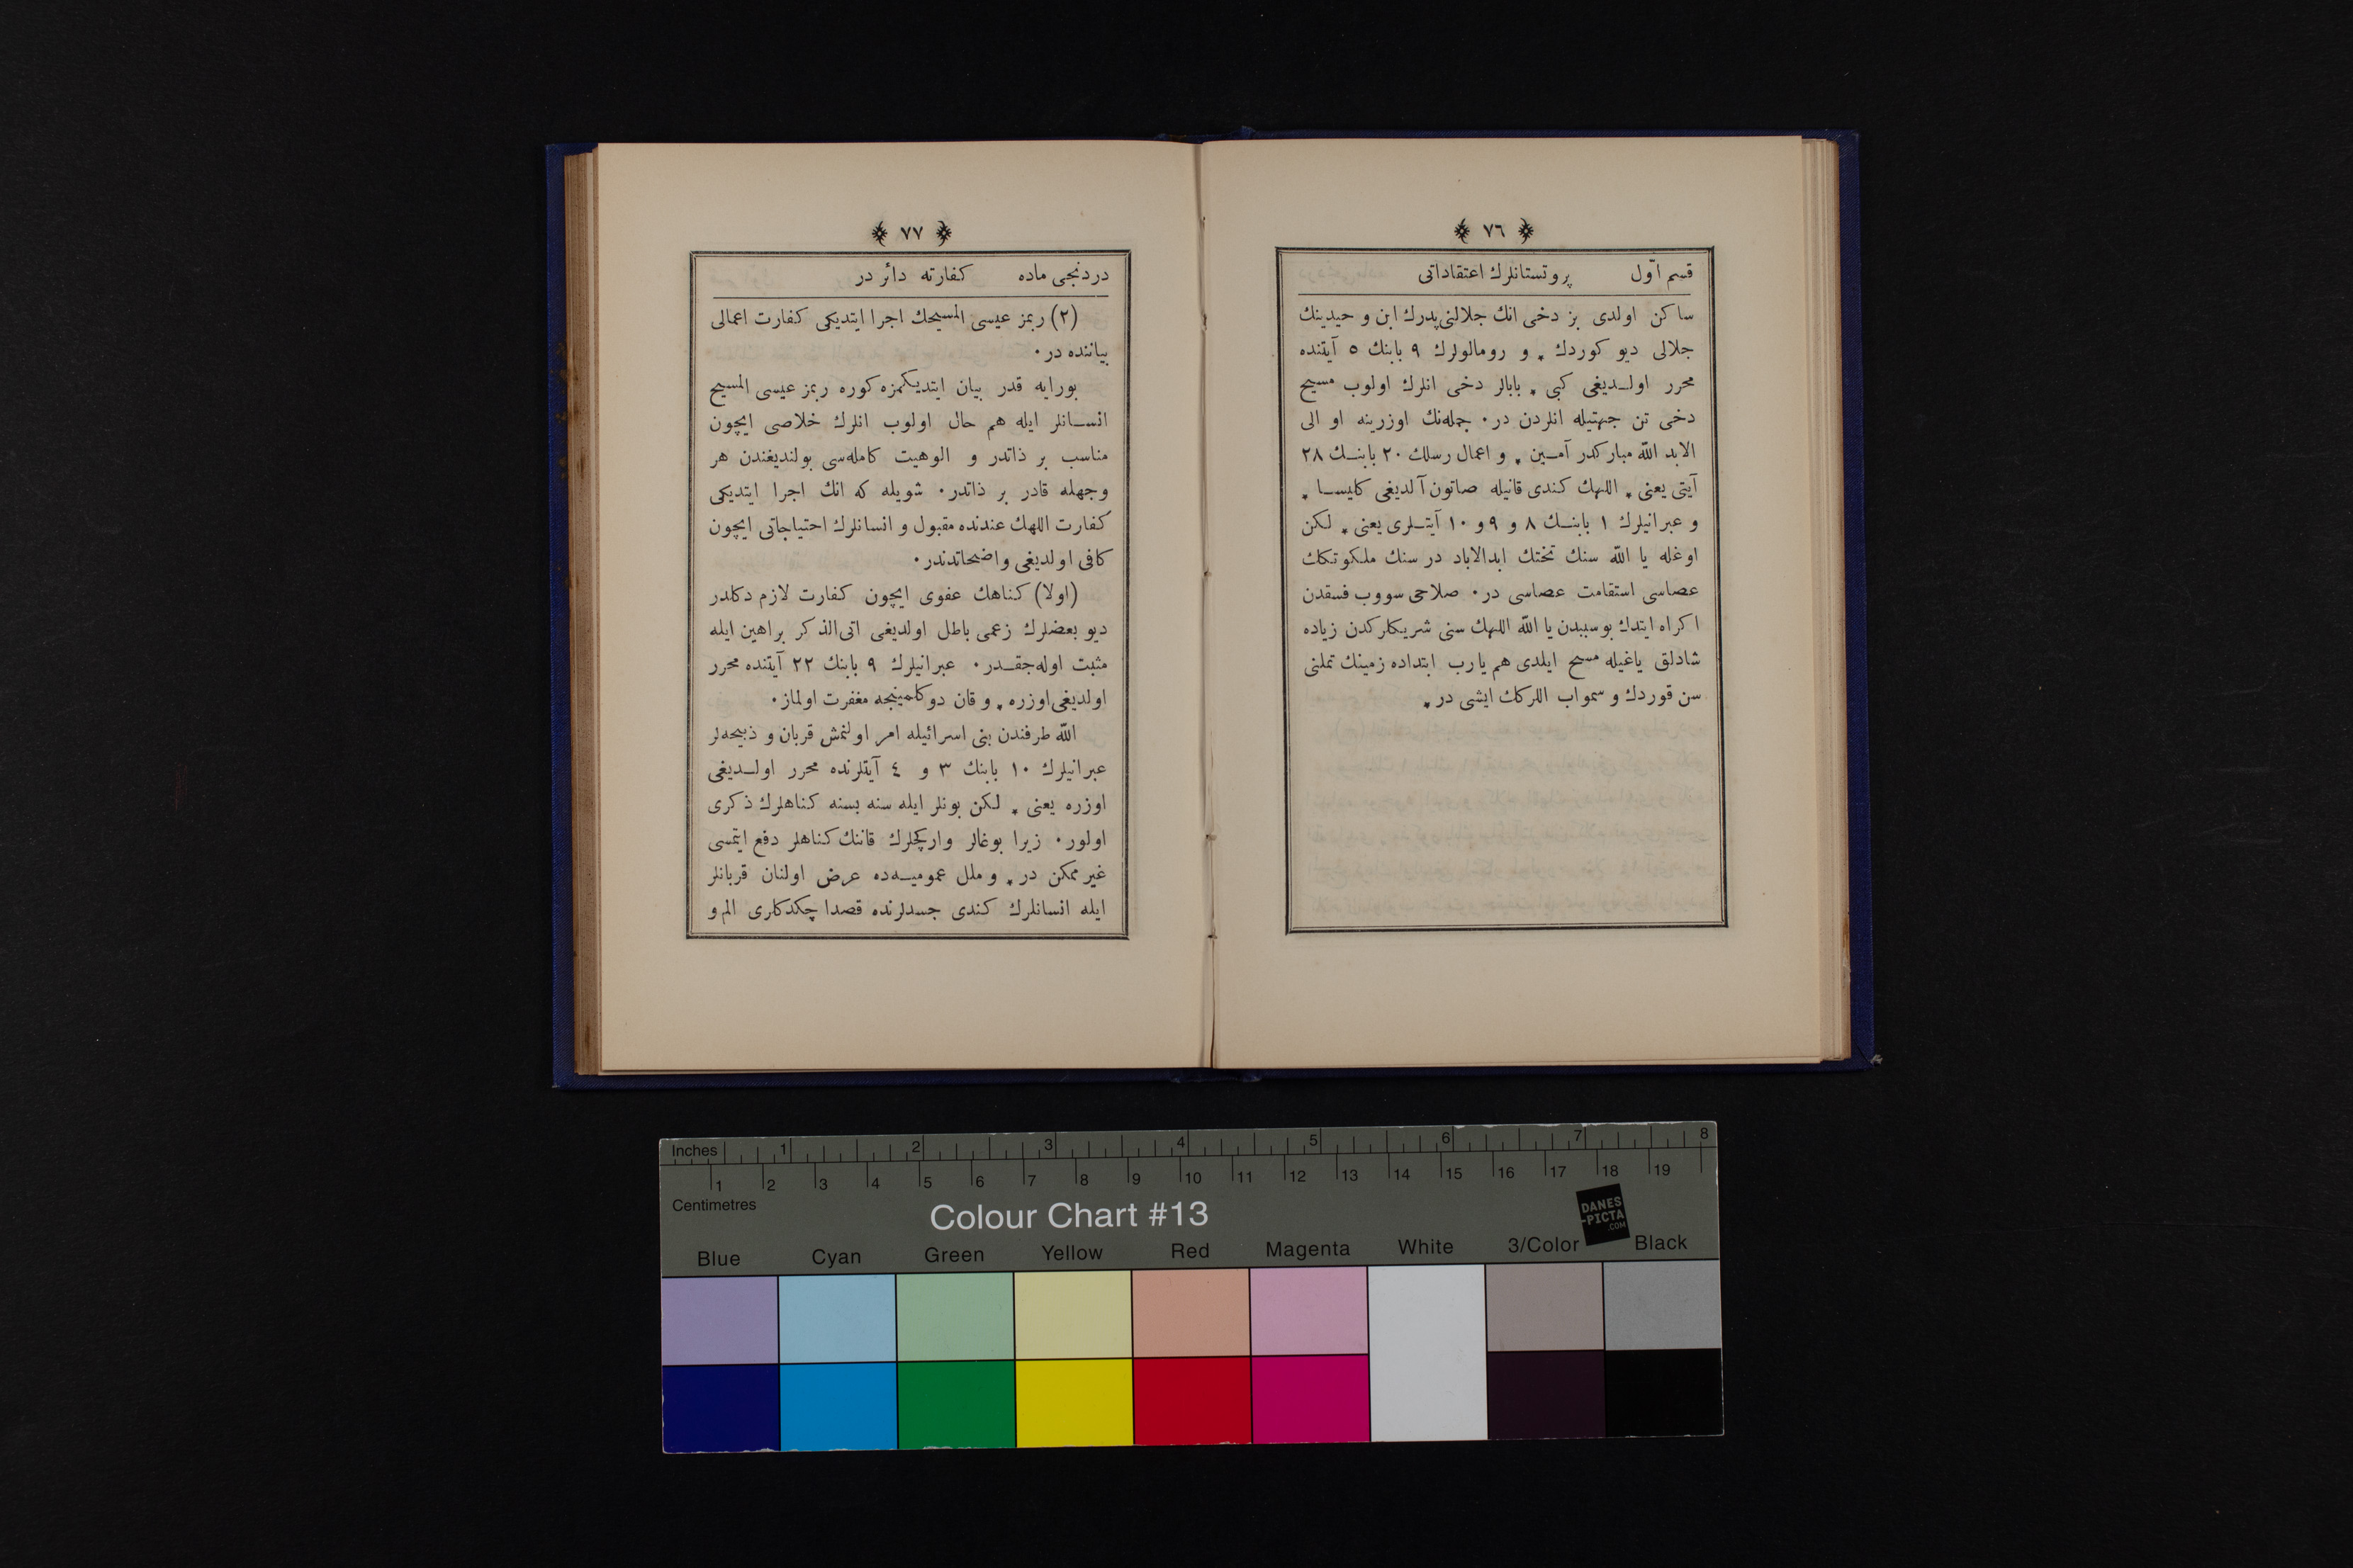 ﴾ ٧٦ ﴿
قسم اوّل پروتستانلرك اعتقاداتی
ساكن اولدی بز دخی انك جلالنی پدرك ابن و حیدینك
جلالی دیو كوردك ٭ و رومالولرك ٩ بابنك ٥ آیتنده
محرر اولـدیغی كبی ٭ بابالر دخی انلرك اولوب مسیح
دخی تن جهتیله انلردن در٠ جمله‌نك اوزرینه او الی
الابد الله مباركدر آمـین ٭ و اعمال رسلك ٢٠ بابنـك ٢٨
آیتی یعنی ٭ اللهك كندی قانیله صاتون آلدیغی كلیسـا ٭
و عبرانیلرك ١ بابنـك ٨ و ٩ و ١٠ آیتـلری یعنی ٭ لكن
اوغله یا الله سنك تختك ابدالاباد در سنك ملكوتكك
عصاسی استقامت عصاسی در٠ صلاحی سووب فسقدن
اكراه ایتدك بوسببدن یا الله اللهك سنی شریكلركدن زیاده
شادلق یاغیله مسح ایلدی هم یارب ابتداده زمینك تملنی
سن قوردك و سمواب اللركك ایشی در ٭
﴾ ٧٧ ﴿
دردنجی ماده كفارته دائر در
(٢) ربمز عیسی المسیحك اجرا ایتدیكی كفارت اعمالی
بیاننده در٠
بورایه قدر بیان ایتدیكمزه كوره ربمز عیسی المسیح
انسـانلر ایله هم حال اولوب انلرك خلاصی ایچون
مناسب بر ذاتدر و الوهیت كامله‌سی بولندیغندن هر
وجهله قادر بر ذاتدر٠ شویله كه انك اجرا ایتدیكی
كفارت اللهك عندنده مقبول و انسانلرك احتیاجاتی ایچون
كافی اولدیغی واضحاتدندر٠
(اولا) كناهك عفوی ایچون كفارت لازم دكلدر
دیو بعضلرك زعمی باطل اولدیغی اتی‌الذكر براهین ایله
مثبت اوله‌جقـدر٠ عبرانیلرك ٩ بابنك ٢٢ آیتنده محرر
اولدیغی اوزره ٭ و قان دوكلمینجه مغفرت اولماز٠
الله طرفندن بنی اسرائیله امر اولنمش قربان و ذبیحه‌لر
عبرانیلرك ١٠ بابنك ٣ و ٤ آیتلرنده محرر اولـدیغی
اوزره یعنی ٭ لكن بونلر ایله سنه بسنه كناهلرك ذكری
اولور٠ زیرا بوغالر واركچلرك قاننك كناهلر دفع ایتمسی
غیر ممكن در ٭ و ملل عمومیـه‌ده عرض اولنان قربانلر
ایله انسانلرك كندی جسدلرنده قصدا چكدكلری الم و
Inches 1 2 3 4 5 6 7 8
1 2 3 4 5 6 7 8 9 10 11 12 13 14 15 16 17 18 19
Centimetres
DANES
-PICTA
.COM
Colour Chart #13
Blue Cyan Green Yellow Red Magenta White 3/Color Black